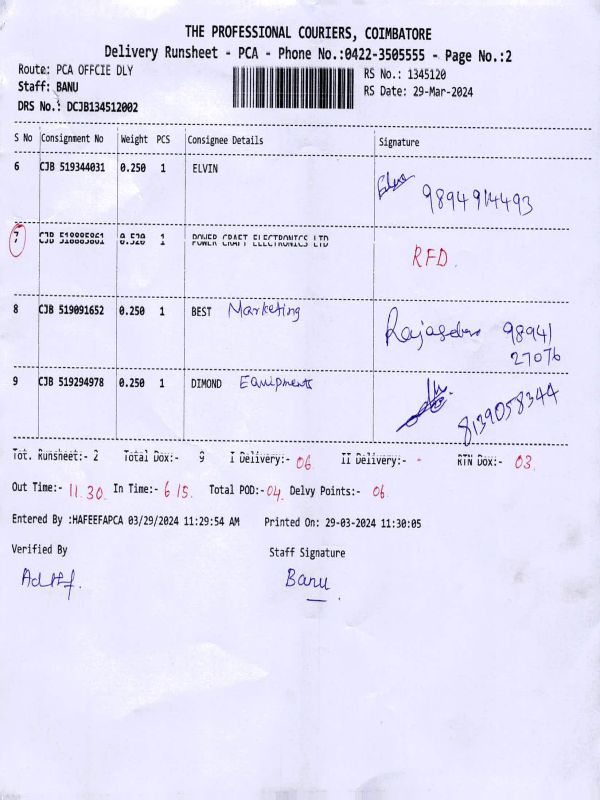 THE PROFESSIONAL COURIERS, COIMBATORE
Delivery Runsheet - PCA - Phone No.:0422-3505555 - Page No.:2
Route: PCA OFFCIE DLY
RS No.: 1345120
Staff: BANU
RS Date: 29-Mar-2024
DRS No.: DCJB134512002
S No Consignment No Weight PCS Consignee Details Signature
6 CJB 519344031 0.250 1 ELVIN
9894914493
7 CJB 518885861 0.520 1 POWER CRAFT ELECTRONICS LTD
RFD.
8 CJB 519091652 0.250 1 BEST Marketing
98941
27076
9 CJB 519294978 0.250 1 DIMOND Equipments
8139058344
Tot. Runsheet:- 2 Total Dox:- 9 I Delivery:- 06 II Delivery:- - RTN Dox:- 03.
Out Time:- 11.30 In Time:- 6 15. Total POD:- 04. Delvy Points:- 06.
Entered By :HAFEEFAPCA 03/29/2024 11:29:54 AM Printed On: 29-03-2024 11:30:05
Verified By Staff Signature
Banu